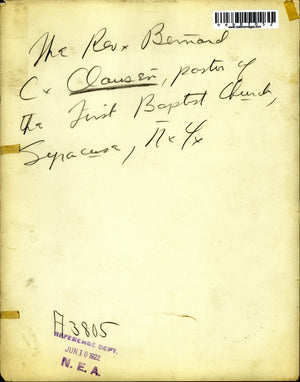 The Revx Bernard
Cx Clausen, pastor of
the First Baptist Church,
Syracuse, Nx Yx
A3805
REFERENCE DEPT.
JUN 10 1922
N. E. A.